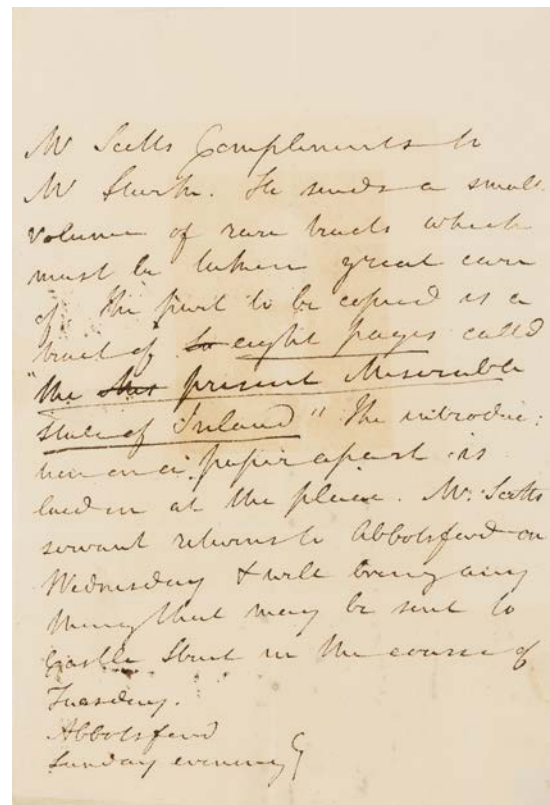 Mr Scotts Compliments to
Mr Stark. He sends a small
volume of rare tracts which
must be taken great care
of. The part to be copied is a
tract of eight pages called
"the present Miserable
State of Ireland" The introduc:
tion on a paper apart is
laid in at the place. Mr. Scotts
servant returns to Abbotsford on
Wednesday & will bring any
thing that may be sent to
Castle Street in the course of
Tuesday.
Abbotsford
Sunday evening